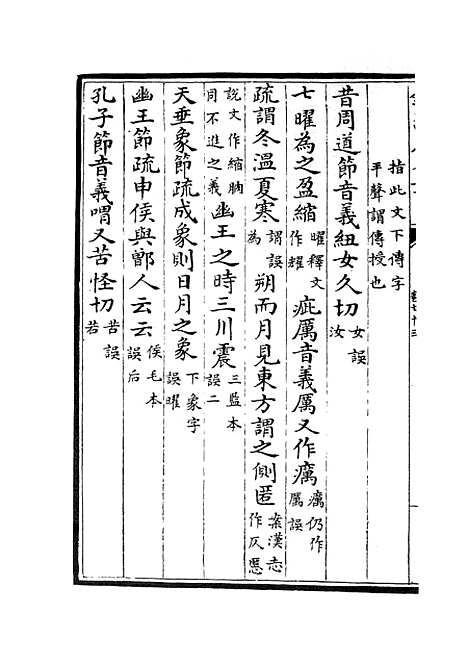 指此文下傳字
平聲謂傳授也
昔周道節音義紐女久切女誤汝
七曜為之盈縮曜釋文作耀疵厲音義厲又作癘癘仍作厲誤
疏謂冬溫夏寒謂誤為朔而月見東方謂之側匿案漢志作仄慝
說文作縮朒同不進之義幽王之時三川震三監本誤二
天垂象節疏成象則日月之象下象字誤曜
幽王節疏申侯與鄫人云云侯毛本誤后
孔子節音義喟又苦怪切苦誤若
卷七十三